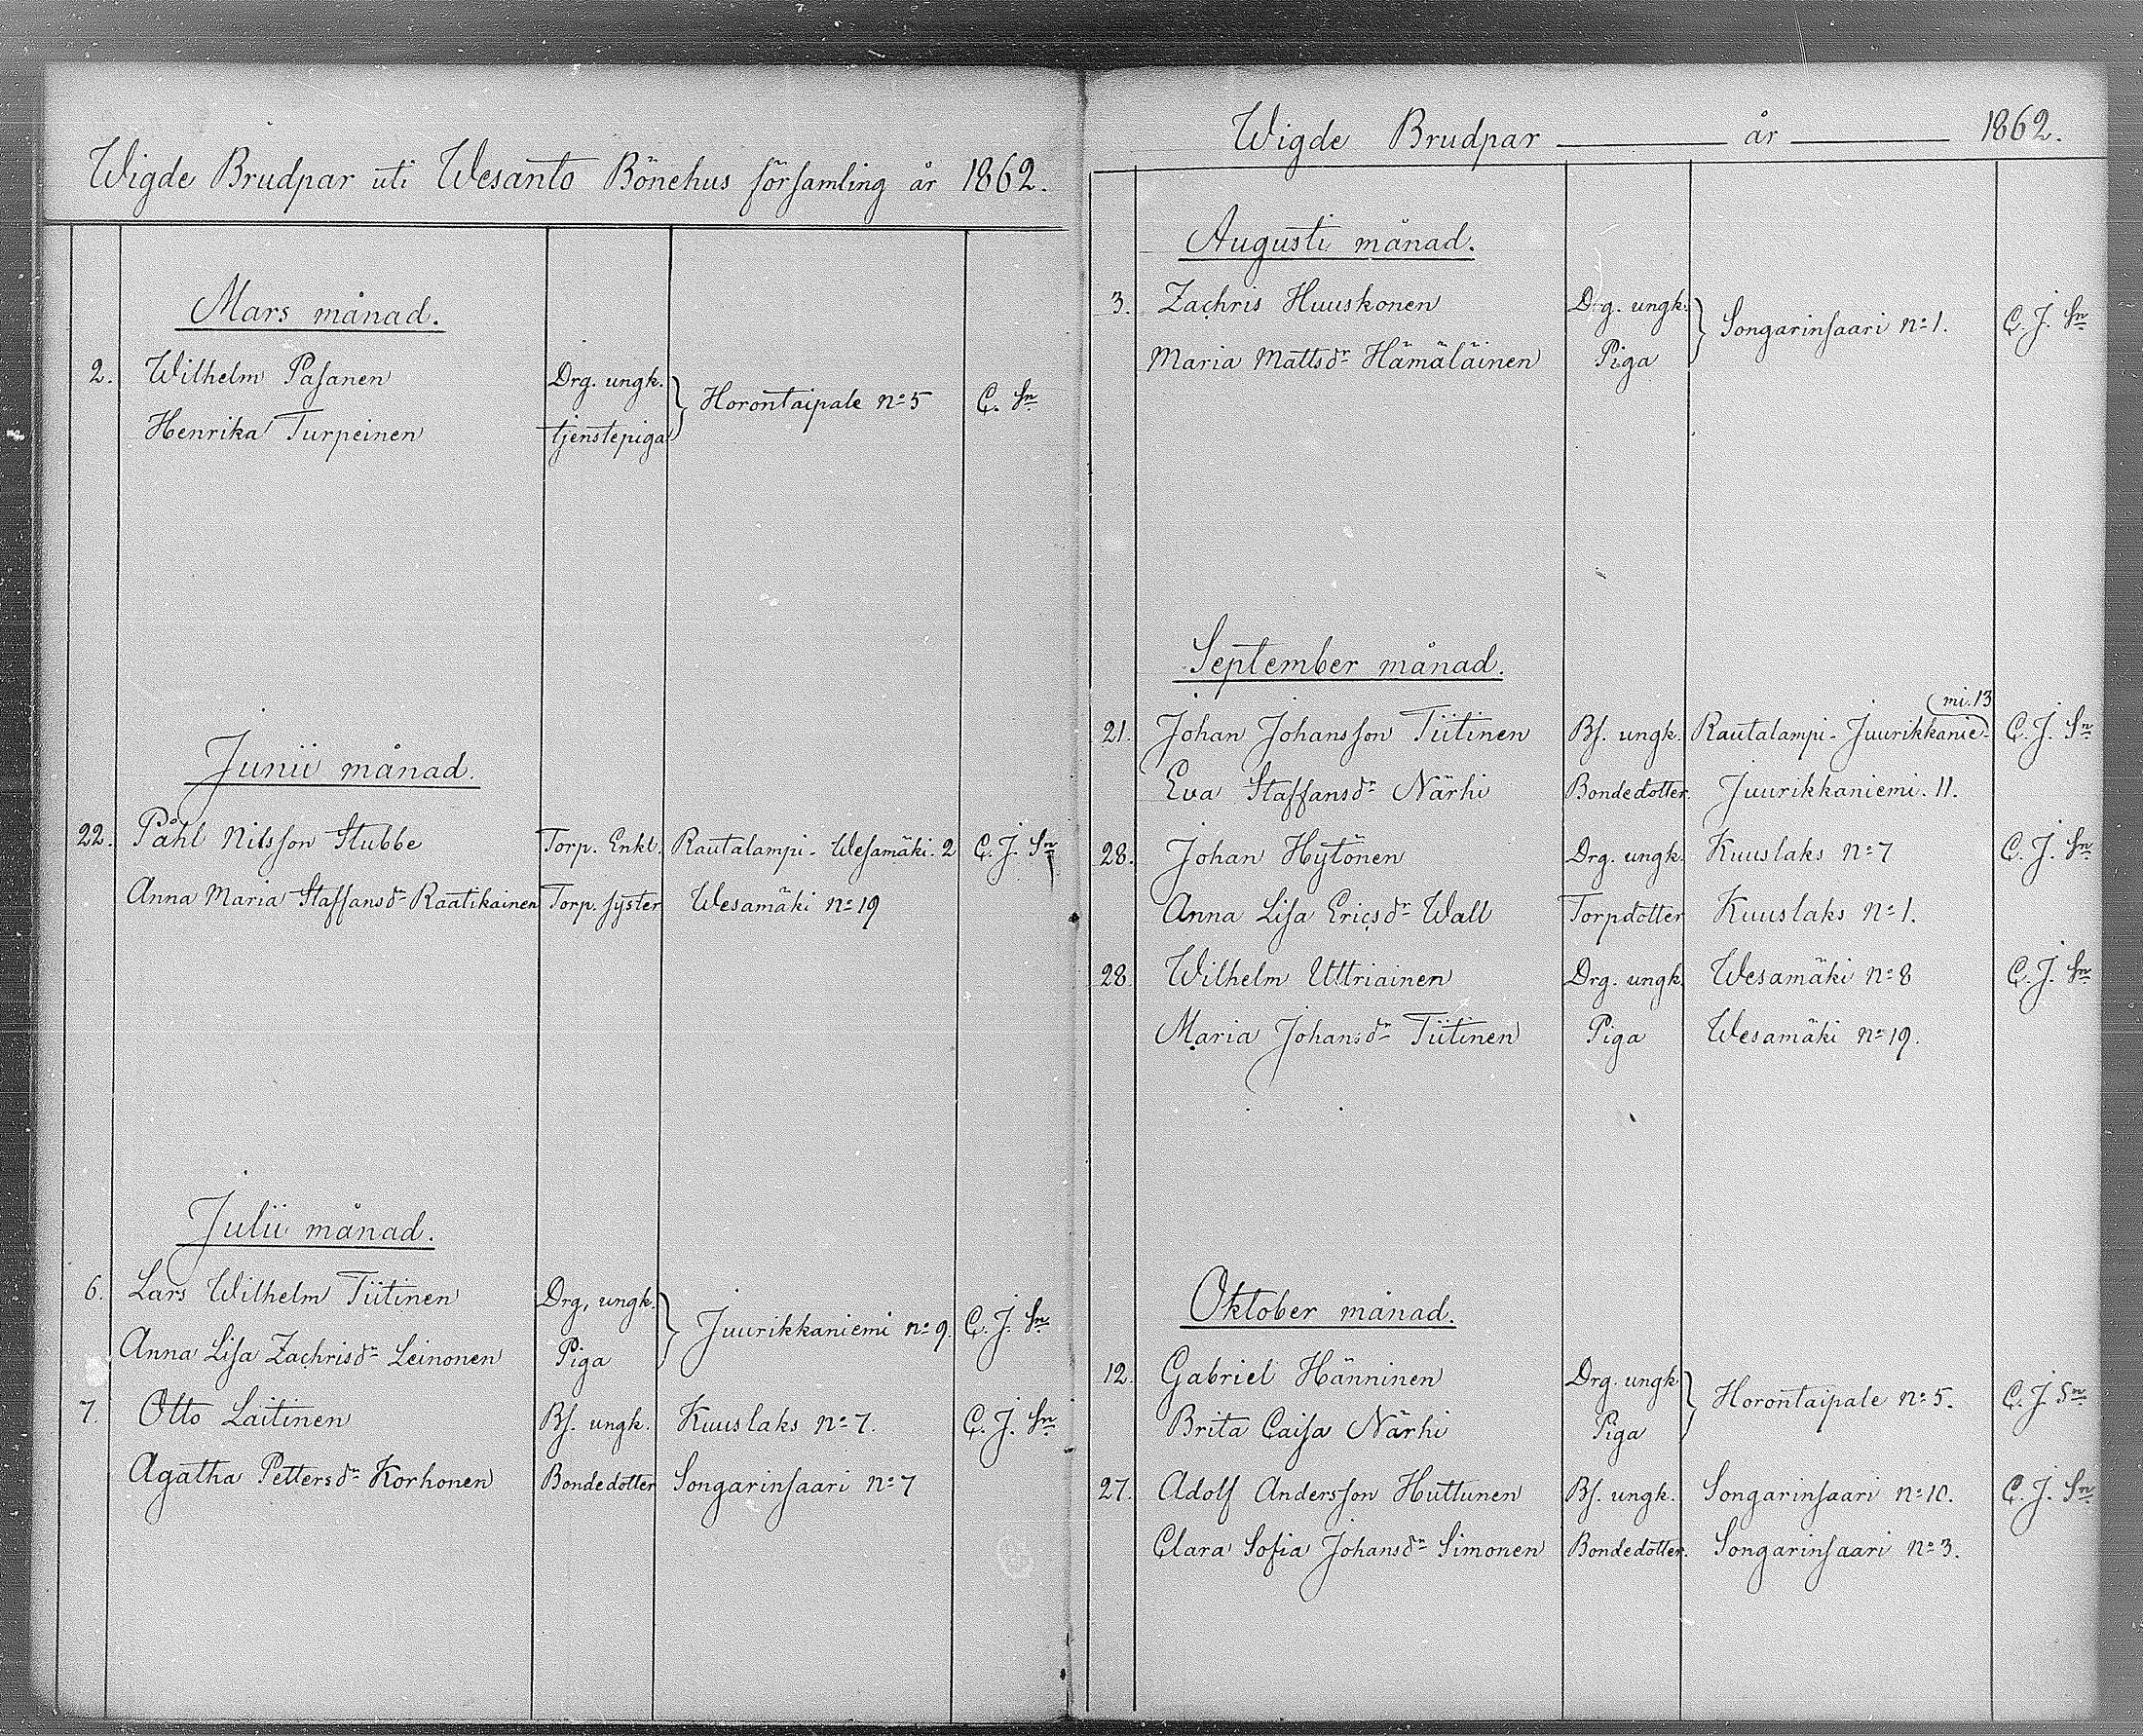 Wigde Brudpar uti Wesanto Bönehus församling år 1862.
Mars månad.
2. Wilhelm Pasanen Drg. ungk. Horontaipale No 5 C. Sn
Henrika Turpeinen tjenstepiga
Junii månad.
22. Påhl Nilsson Stubbe Torp. Enkl. Rautalampi - Wesamäki. 2 C. J. Sn
Anna Maria Staffansdr Raatikainen Torp. syster Wesamäki No 19
Julii månad.
6. Lars Wilhelm Tiitinen Drg, ungk. Juurikkaniemi No 9. C. J. Sn
Anna Lisa Zachrisdr Leinonen Piga
7. Otto Laitinen Bs. ungk. Kuuslaks No 7. C. J. Sn
Agatha Pettersdr Korhonen Bondedotter Songarinsaari No 7
Wigde Brudpar år 1862.
Augusti månad.
3. Zachris Huuskonen Drg. ungk. Songarinsaari No 1. C. J. Sn
Maria Mattsdr Hämäläinen Piga
September månad.
mi. 13
21. Johan Johansson Tiitinen Bs. ungk. Rautalampi - Juurikkanie- C. J. Sn
Eva Staffansdr Närhi Bondedotter. Juurikkaniemi. 11.
28. Johan Hytönen Drg. ungk. Kuuslaks No 7 C. J. Sn
Anna Lisa Ericsdr Wall Torpdotter Kuuslaks No 1.
28. Wilhelm Uttriainen Drg. ungk. Wesamäki No 8 C. J. Sn
Maria Johansdr Tiitinen Piga Wesamäki No 19.
Oktober månad.
12. Gabriel Hänninen Drg. ungk Horontaipale No 5. C. J. Sn
Brita Caisa Närhi Piga
27. Adolf Andersson Huttunen Bs. ungk. Songarinsaari No 10. C. J. Sn
Clara Sofia Johansdr Simonen Bondedotter. Songarinsaari No 3.